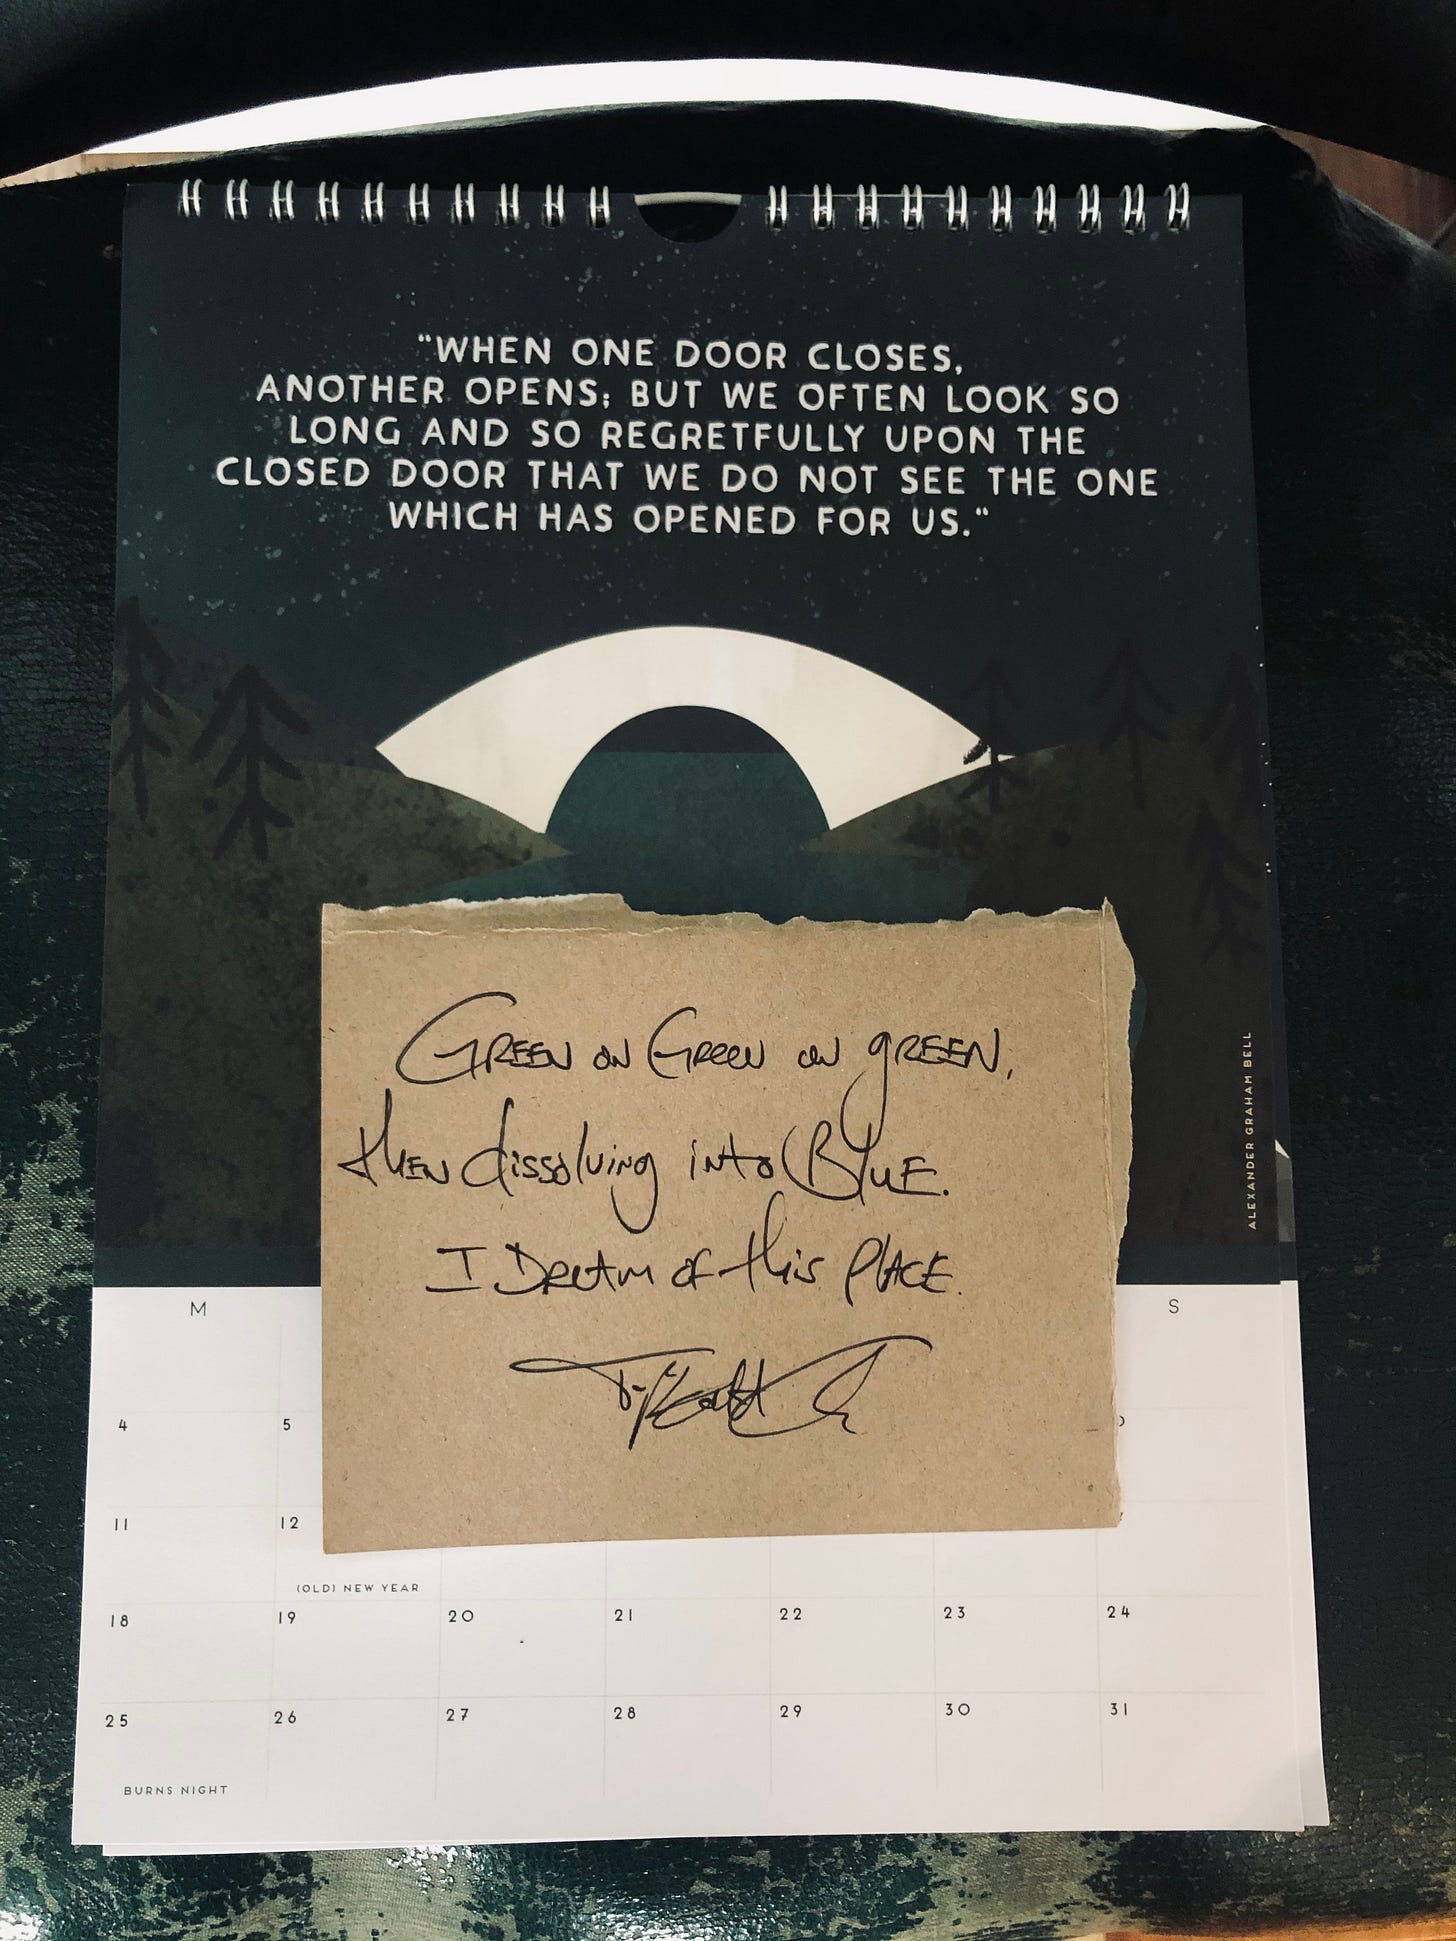 "WHEN ONE DOOR CLOSES,
ANOTHER OPENS; BUT WE OFTEN LOOK SO
LONG AND SO REGRETFULLY UPON THE
CLOSED DOOR THAT WE DO NOT SEE THE ONE
WHICH HAS OPENED FOR US."
ALEXANDER GRAHAM BELL
GREEN ON GREEN ON GREEN,
then dissolving into BLUE.
I DREAM OF this PLACE.
M S
4 5
11 12
(OLD) NEW YEAR
18 19 20 21 22 23 24
25 26 27 28 29 30 31
BURNS NIGHT